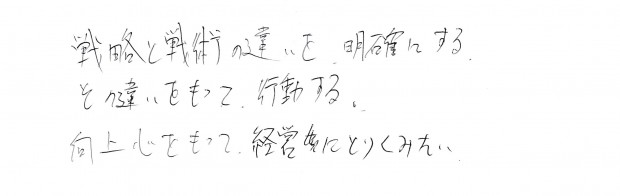 戦略と戦術の違いを、明確にする。
その違いをもって、行動する。
向上心をもって、経営者にとりくみたい。